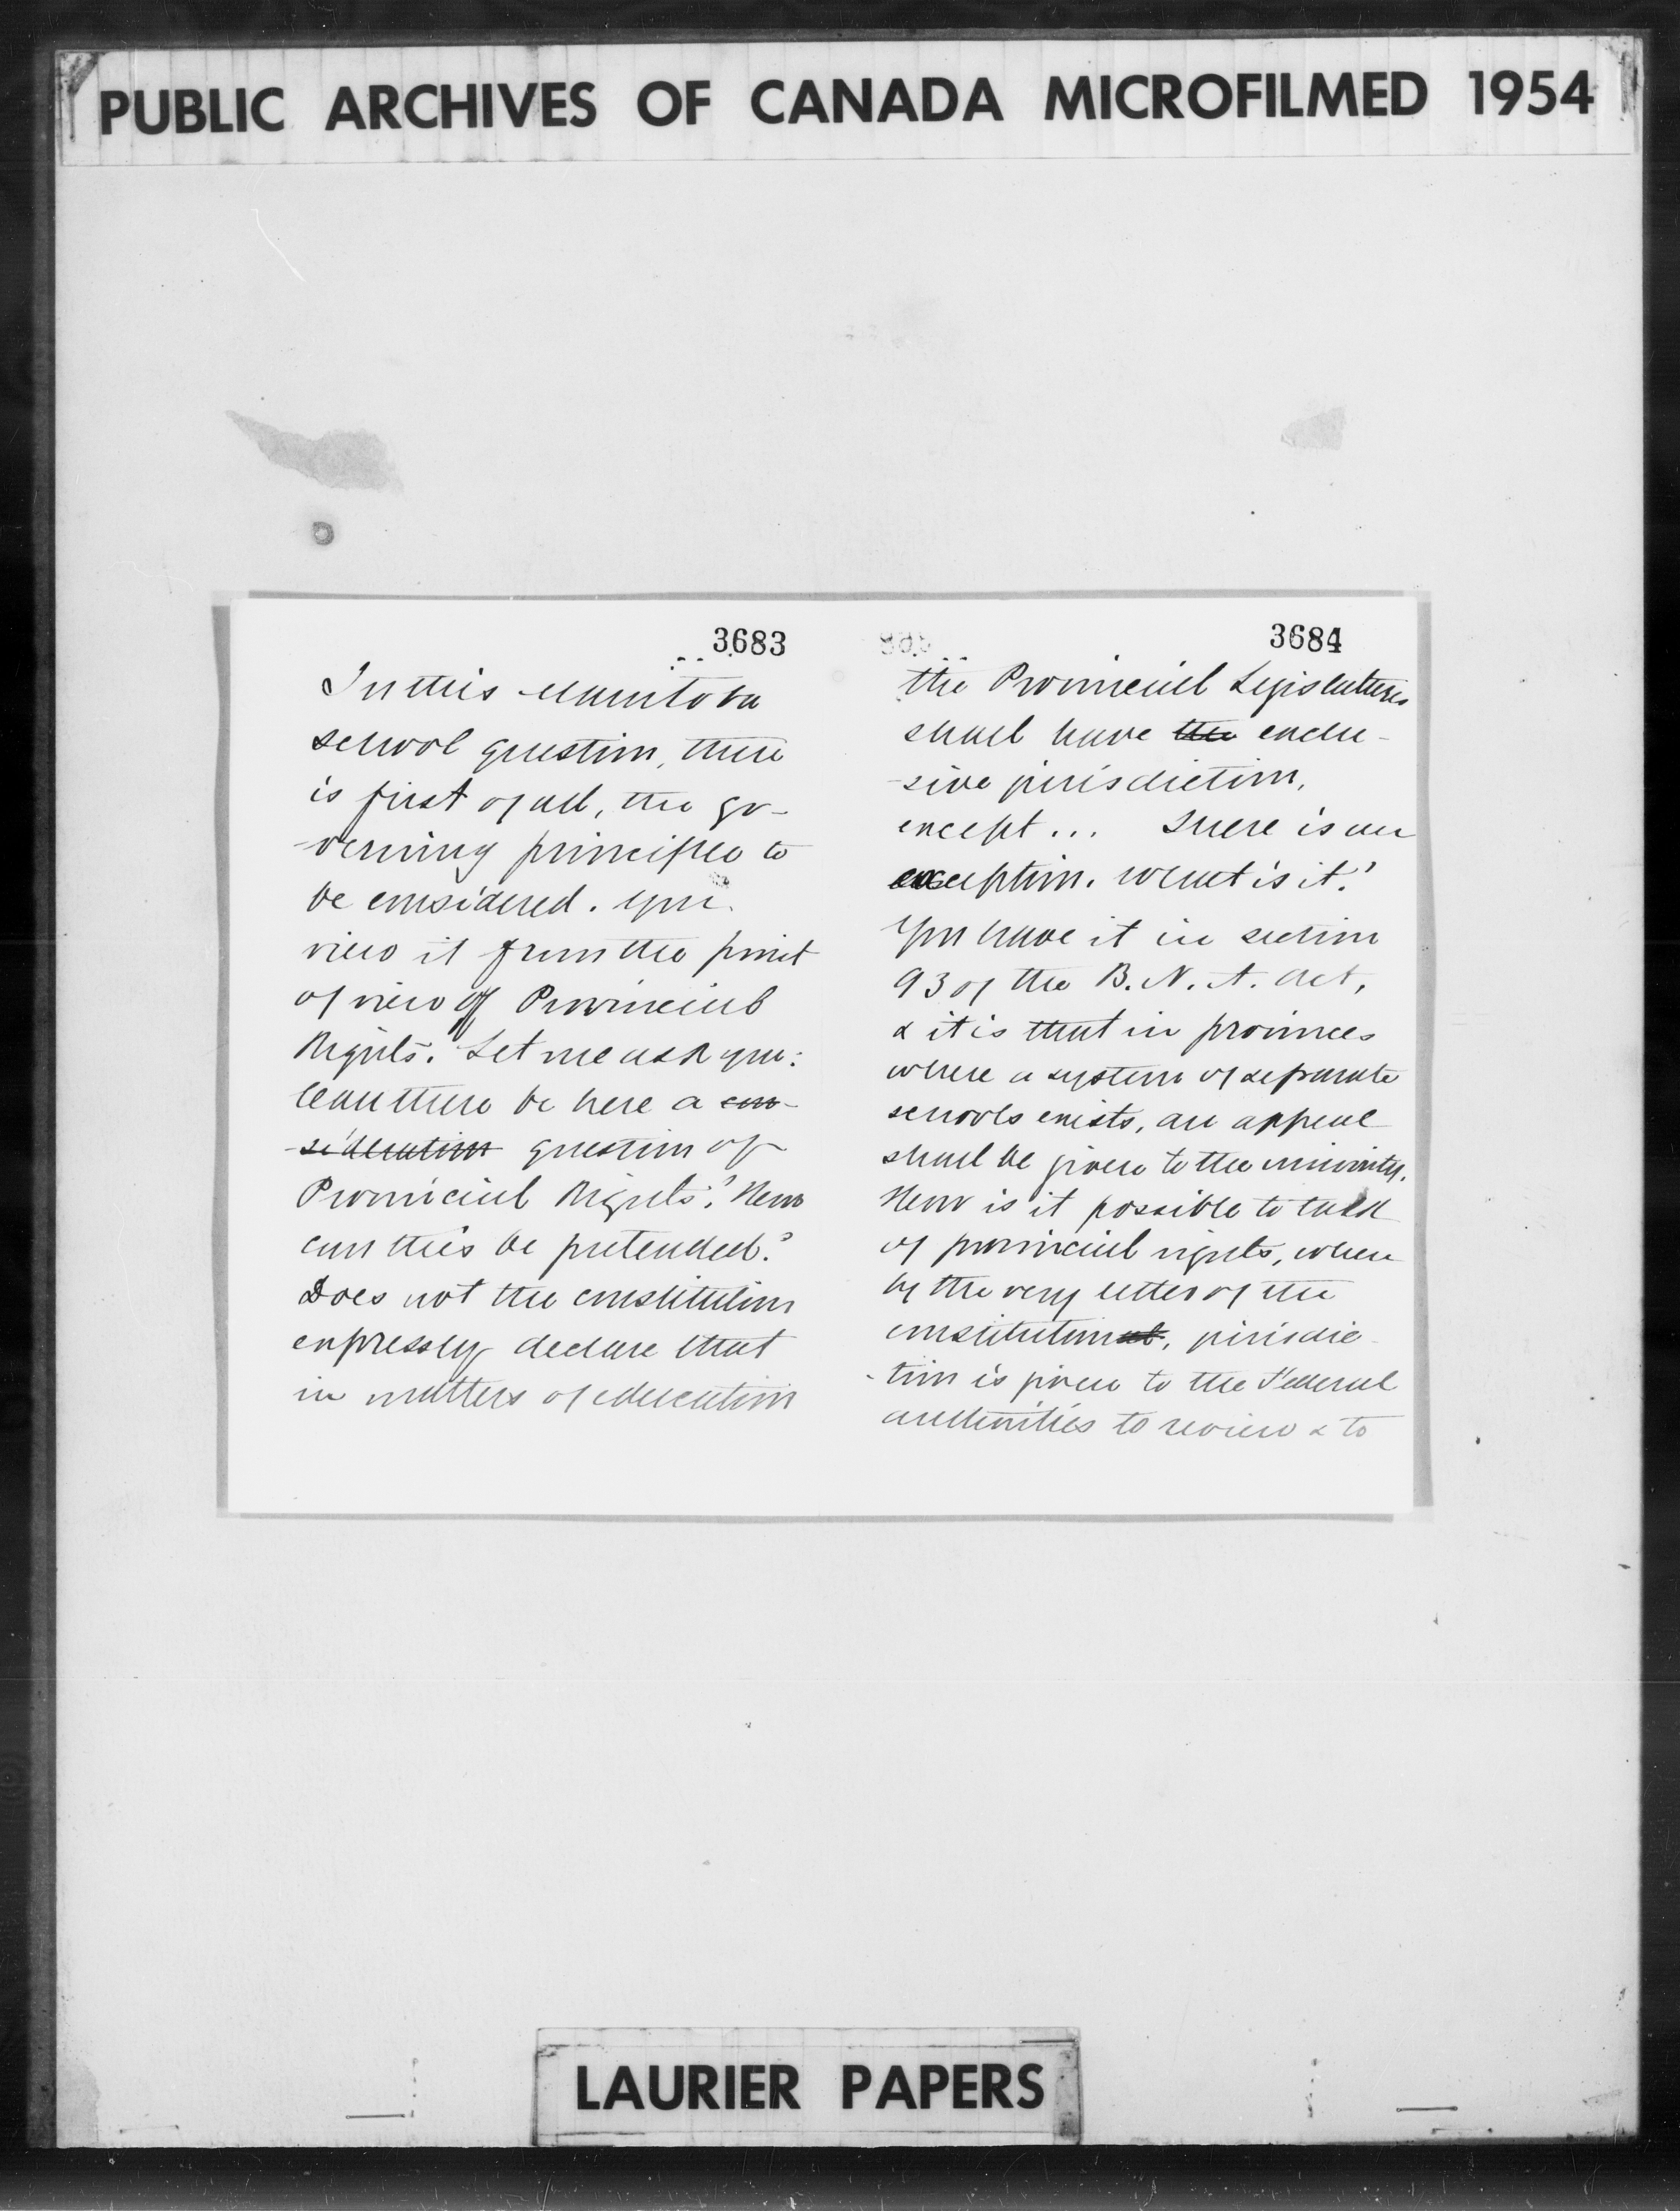 PUBLIC ARCHIVES OF CANADA MICROFILMED 1954
3683
In this Manitoba
school question, there
is first of all, the go-
-verning principles to
be considered. You
view it from the point
of view of Provincial
Rights. Let me ask you:
Can there be here a con-
-sideration question of
Provincial Rights? How
can this be pretended?
Does not the constitution
expressly declare that
in matters of education
3684
the Provincial Legislatures
shall have the exclu-
-sive jurisdiction,
except... There is an
exception. What is it?
You have it in section
93 of the B. N. A. Act,
& it is that in provinces
where a system of separate
schools exists, an appeal
shall be given to the minority.
How is it possible to talk
of provincial rights, when
by the very letter of the
constitutional, jurisdic-
-tion is given to the Federal
authorities to review & to
LAURIER PAPERS